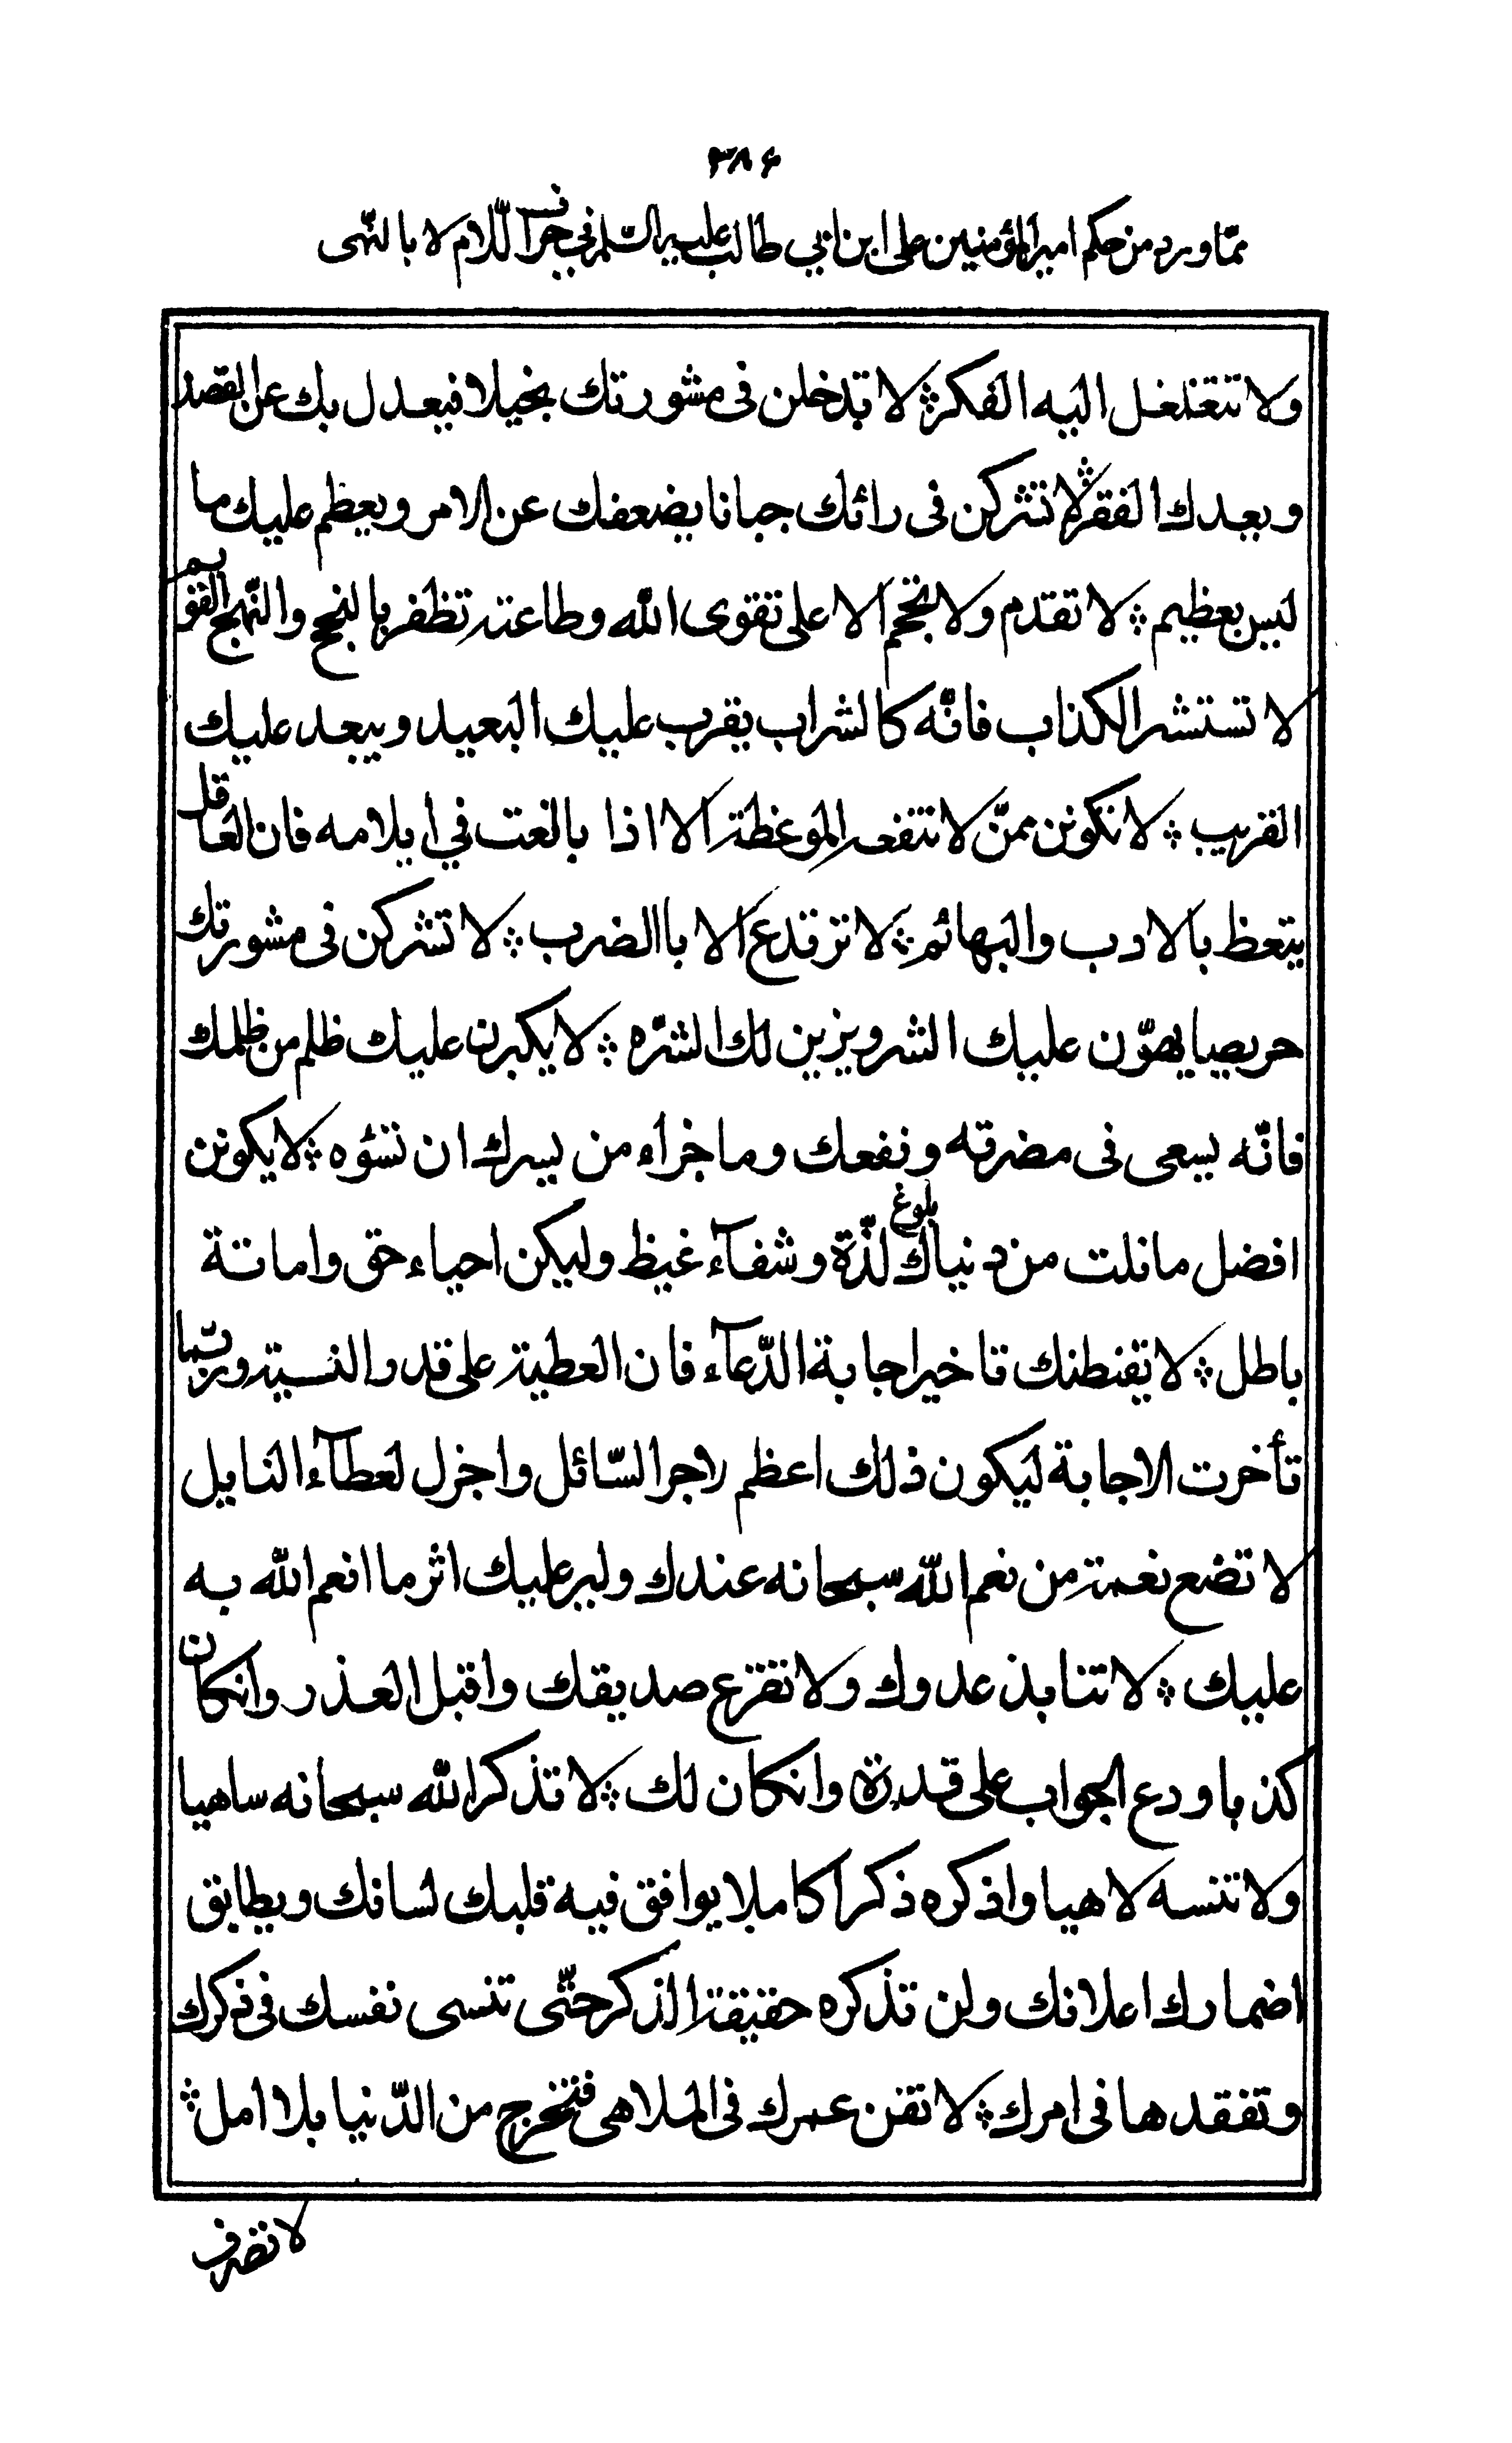 ۳۸۶
ممّا ورد من حکم امیر المؤمنین علی ابن ابی طالب علیه السّلم فی حرف اللّام لا بالنّهی
ولا تتغلغل الیه الفکر ؞ لا تدخلن فی مشورتك بخیلا فیعدل بك عن القصد
ویعدك الفقر ؞ لا تشرکن فی رائك جبانا یضعفك عن الامر ویعظم علیك ما
لیس بعظیم ؞ لا تقدم ولا تحجم الا علی تقوی اللّه وطاعته تظفر بالنجح والنّهج القویم
لا تستشر الکذاب فانّه کالشراب یقرب علیك البعید ویبعد علیك
القریب ؞ لا تکونن ممّن لا تنفعه الموعظة الا اذا بالغت فی ایلامه فان العاقل
یتعظ بالادب والبهائم ؞ لا ترتدع الا باالضرب ؞ لا تشرکن فی مشورتك
حریصا یهوّن علیك الشر ویزین لك الشرّه ؞ لا یکبرن علیك ظلم من ظلمك
فانّه یسعی فی مضرته ونفعك وما جزاء من یسرك ان تسؤه ؞ لا یکونن
افضل ما نلت من دنیاك بلوغ لذّة وشفآء غیظ ولیکن احیاء حق واماتة
باطل ؞ لا یقنطنك تاخیر اجابة الدّعآء فان العطیة علی قدر النسیته وربّما
تأخرت الاجابة لیکون ذلك اعظم لاجر السّائل واجزل لعطآء النایل
لا تضع نعمة من نعم اللّه سبحانه عندك ولیر علیك اثر ما انعم اللّه به
علیك ؞ لا تنابذ عدوك ولا تقرع صدیقك واقبل العذر وانکان
کذبا ودع الجواب علی قدرة وانکان لك ؞ لا تذکر اللّه سبحانه ساهیا
ولا تنسه لاهیا واذکره ذکرا کاملا یوافق فیه قلبك لسانك ویطابق
اضمارك اعلانك ولن تذکره حقیقة الذکر حتّی تنسی نفسك فی ذکرك
وتفقدها فی امرك ؞ لا تفن عمرك فی الملاهی فتخرج من الدّنیا بلا امل ؞
لا تصرف